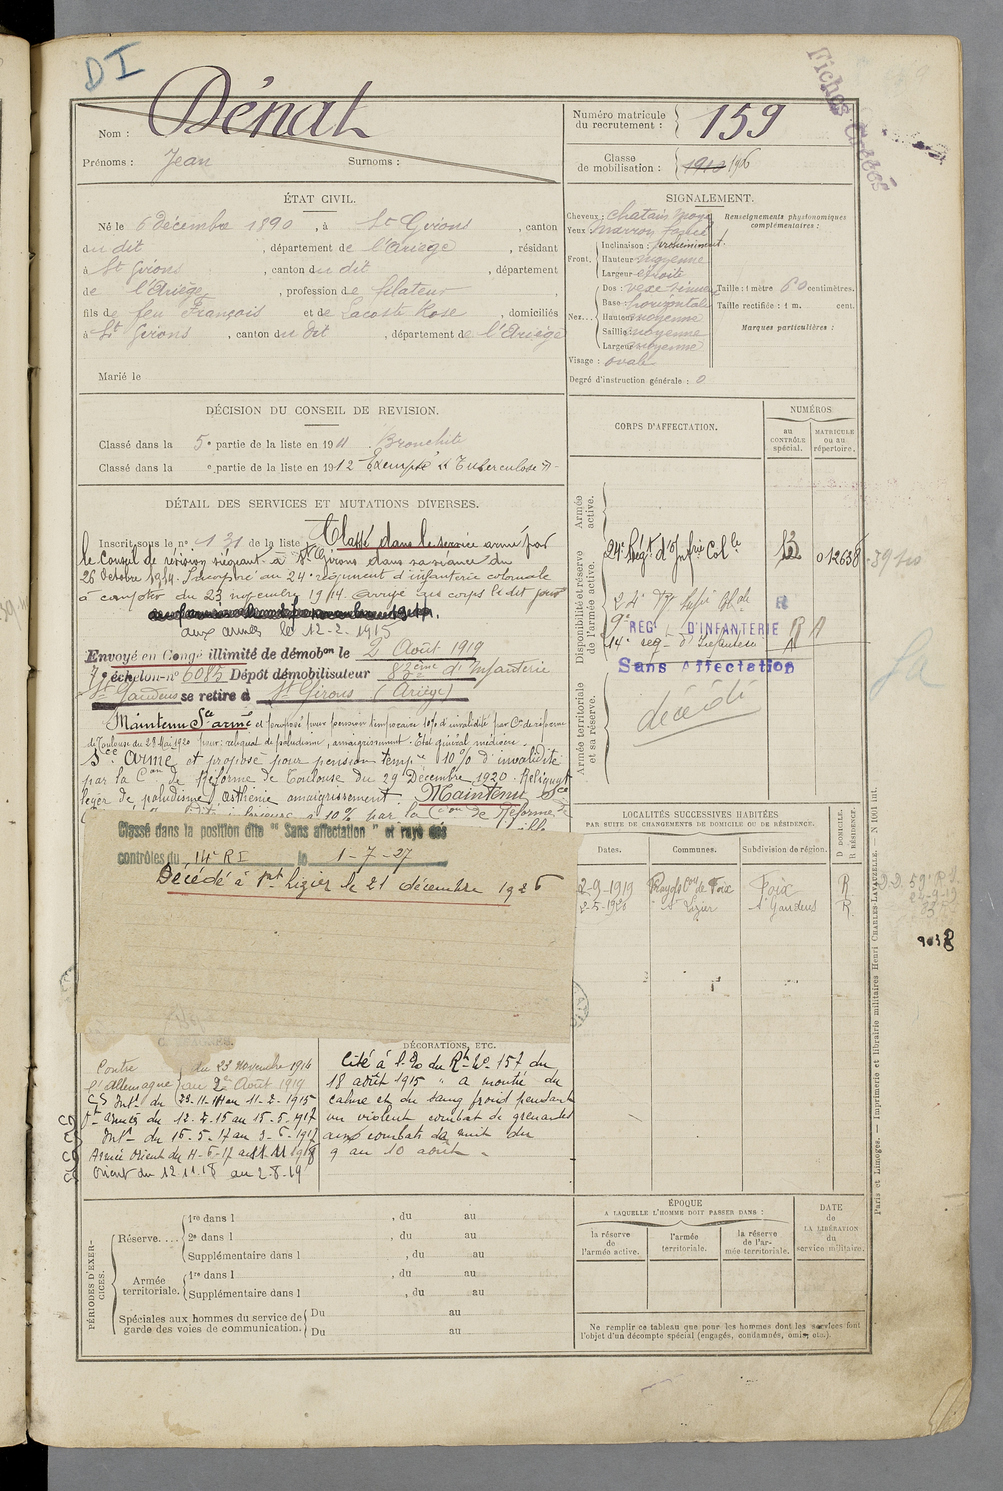 DI
Fiches
Nom : Dénat
Prénoms : Jean Surnoms :
Numéro matricule
du recrutement : 159
Classe
de mobilisation : 1910 1906
ÉTAT CIVIL.
Né le 6 décembre 1890, à St Girons, canton
du dit, département de l'Ariège, résidant
à St Girons, canton du dit, département
de l'Ariège, profession de filateur,
fils de feu François et de Lacoste Rose, domiciliés
à St Girons, canton du dit, département de l'Ariège
Marié le
SIGNALEMENT.
Cheveux : chatain moyen
Yeux marron foncé
Front. Inclinaison : proéminent
Hauteur moyenne
Largeur étroite
Nez... Dos : vexe sinueux
Base : horizontale
Hauteur moyenne
Saillie moyenne
Largeur moyenne
Visage : ovale
Degré d'instruction générale : 0
Renseignements physionomiques
complémentaires :
Taille : 1 mètre 60 centimètres.
Taille rectifiée : 1 m. cent.
Marques particulières :
DÉCISION DU CONSEIL DE REVISION.
Classé dans la 5e partie de la liste en 1911. Bronchite
Classé dans la e partie de la liste en 1912 Exempté "Tuberculose"
DÉTAIL DES SERVICES ET MUTATIONS DIVERSES.
Inscrit sous le n° 131 de la liste Classé dans le service armé par
le Conseil de révision siégeant à St Girons dans sa séance du
26 Octobre 1914. Incorporé au 24e régiment d'infanterie coloniale
à compter du 23 novembre 1914. Arrivé au corps le dit jour
aux armées le 12-2-1915
Envoyé en Congé illimité de démobon le 2 Août 1919
7e échelon n° 6085 Dépôt démobilisateur 83ème d'Infanterie
St Gaudens se retire à St Girons (Ariège)
Maintenu Sce armé et proposé pour pension temporaire 10% d'invalidité par Con de réforme
de Toulouse du 28 Mai 1920 pour : reliquat de paludisme, amaigrissement. Etat général médiocre.
Sce armé et proposé pour pension tempre 10% d'invalidité
par la Con de Réforme de Toulouse du 29 Décembre 1920. Reliquat
léger de paludisme, asthénie amaigrissement. Maintenu Sce
à 10% par la Con de Réforme
Classé dans la position dite "Sans affectation" et rayé des
contrôles du 14e RI le 1-7-27
Décédé à St Lizier le 21 décembre 1926
CORPS D'AFFECTATION.
NUMÉROS
au
CONTRÔLE
spécial.
MATRICULE
ou au
répertoire.
Armée
active.
Disponibilité et réserve
de l'armée active.
24e Régt d'Infrie Colle 13 012638
9e REGt D'INFANTERIE RA
14e reg - d'Infanterie
Sans Affectation
Armée territoriale
et sa réserve.
décédé
LOCALITÉS SUCCESSIVES HABITÉES
PAR SUITE DE CHANGEMENTS DE DOMICILE OU DE RÉSIDENCE.
Dates. Communes. Subdivision de région. D DOMICILE. R RÉSIDENCE.
2-9-1919 con de Foix Foix R
2-5-1920 St Lizier St Gaudens R.
CAMPAGNES.
Contre
l'Allemagne du 23 Novembre 1914
au 2 Août 1919
CS Intr du 23-11-14 au 11-2-1915
Ft armées du 12-2-15 au 15-5-1917
Intr du 16-5-17 au 3-6-1917
Armée Orient du 4-6-17 au 11.11 1918
Orient du 12 11.18 au 2-8-19
DÉCORATIONS, ETC.
Cité à l'. Do du Rt No 157 du
18 août 1915 "a montré du
calme et du sang froid pendant
un violent combat de grenades
aux combats de nuit du
9 au 10 août".
PÉRIODES D'EXERCICES.
Réserve.... 1re dans l , du au
2e dans l , du au
Supplémentaire dans l , du au
Armée
territoriale. 1re dans l , du au
Supplémentaire dans l , du au
Spéciales aux hommes du service de
garde des voies de communication. Du au
Du au
ÉPOQUE
A LAQUELLE L'HOMME DOIT PASSER DANS :
la réserve
de
l'armée active.
l'armée
territoriale.
la réserve
de l'ar-
mée territoriale.
DATE
de
LA LIBÉRATION
du
service militaire.
Ne remplir ce tableau que pour les hommes dont les services font
l'objet d'un décompte spécial (engagés, condamnés, omis, etc.).
Paris et Limoges. — Imprimerie et librairie militaires Henri CHARLES-LAVAUZELLE. — N 1001 int.